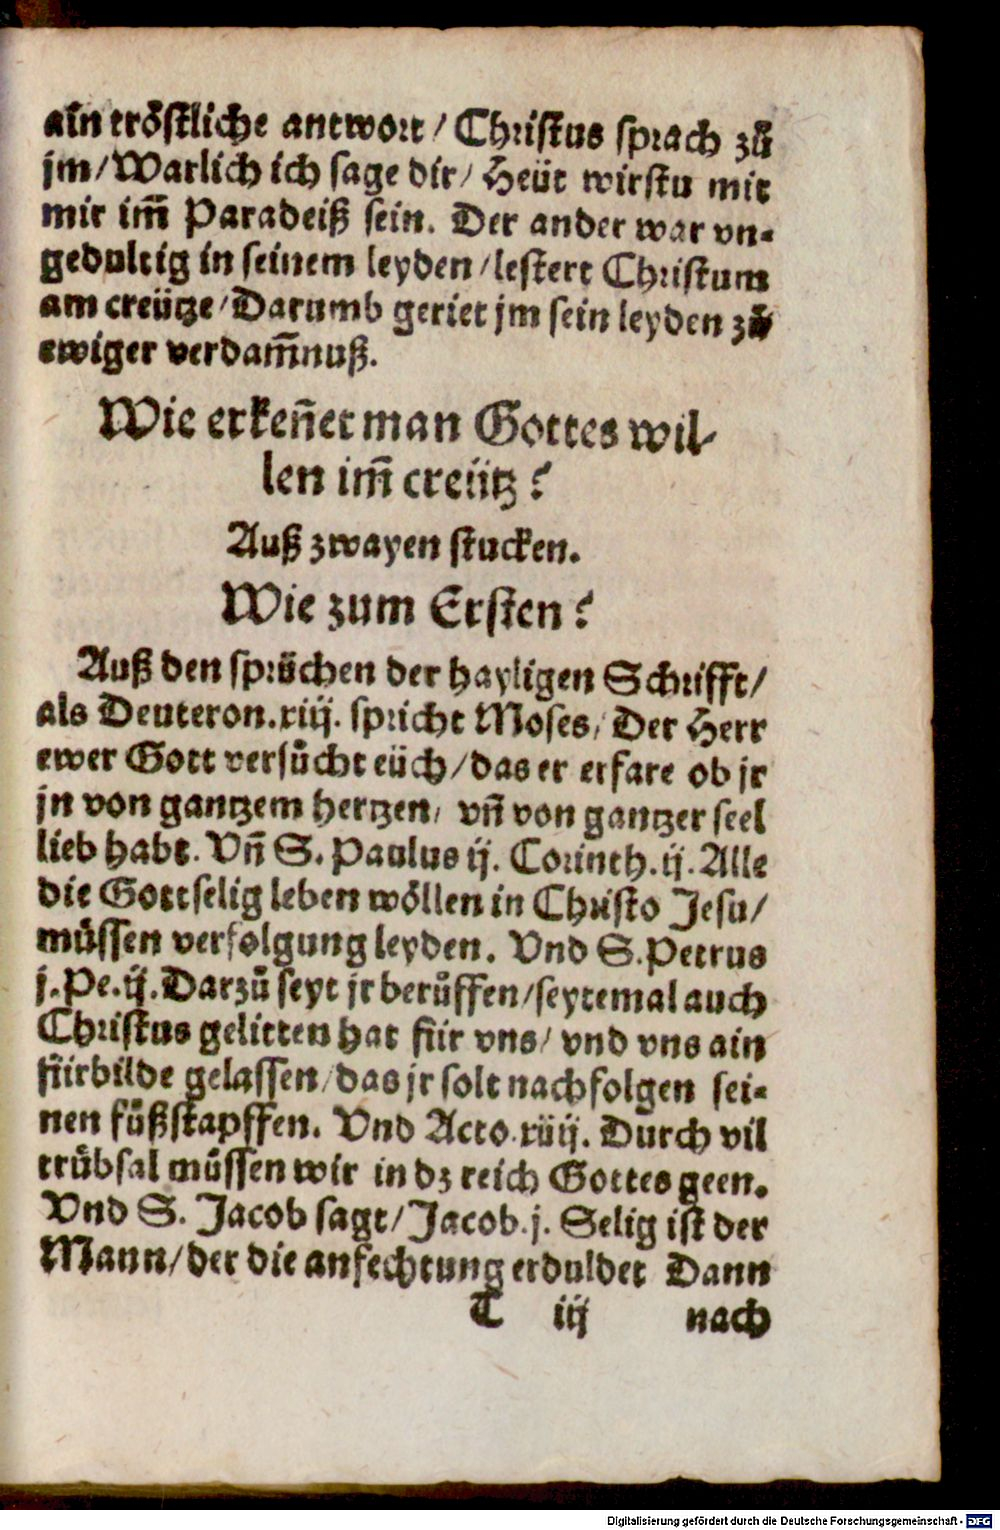 ain tröstliche antwort / Christus sprach zů
jm / Warlich ich sage dir / Heüt wirstu mit
mir im̃ Paradeiß sein. Der ander war vn-
gedultig in seinem leyden / lestert Christum
am creütze / Darumb geriet jm sein leyden zů
ewiger verdam̃nuß.
Wie erkeñet man Gottes wil-
len im̃ creütz?
Auß zwayen stucken.
Wie zum Ersten?
Auß den sprüchen der hayligen Schrifft /
als Deuteron.xiij. spricht Moses / Der Herr
ewer Gott versůcht eüch / das er erfare ob jr
jn von gantzem hertzen / vñ von gantzer seel
lieb habt. Vñ S. Paulus ij. Corinth.ij. Alle
die Gottselig leben wöllen in Christo Jesu /
müssen verfolgung leyden. Vnd S. Petrus
j.Pe.ij. Darzů seyt jr berůffen / seytemal auch
Christus gelitten hat für vns / vnd vns ain
fürbilde gelassen / das jr solt nachfolgen sei-
nen fůßstapffen. Vnd Acto.xiiij. Durch vil
trůbsal müssen wir in dz reich Gottes geen.
Vnd S. Jacob sagt / Jacob.j. Selig ist der
Mann / der die anfechtung erduldet Dann
T iij nach
Digitalisierung gefördert durch die Deutsche Forschungsgemeinschaft - DFG